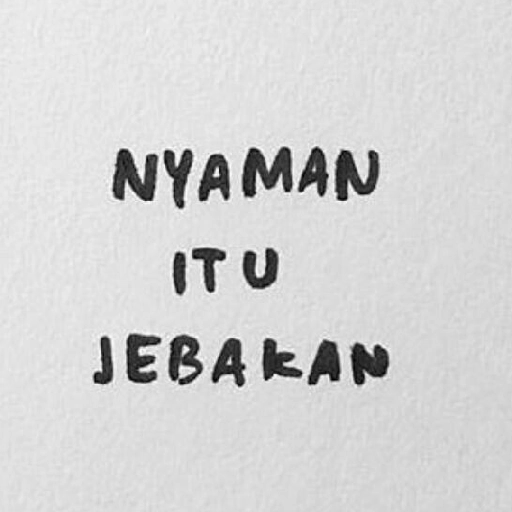 NYAMAN
ITU
JEBAKAN